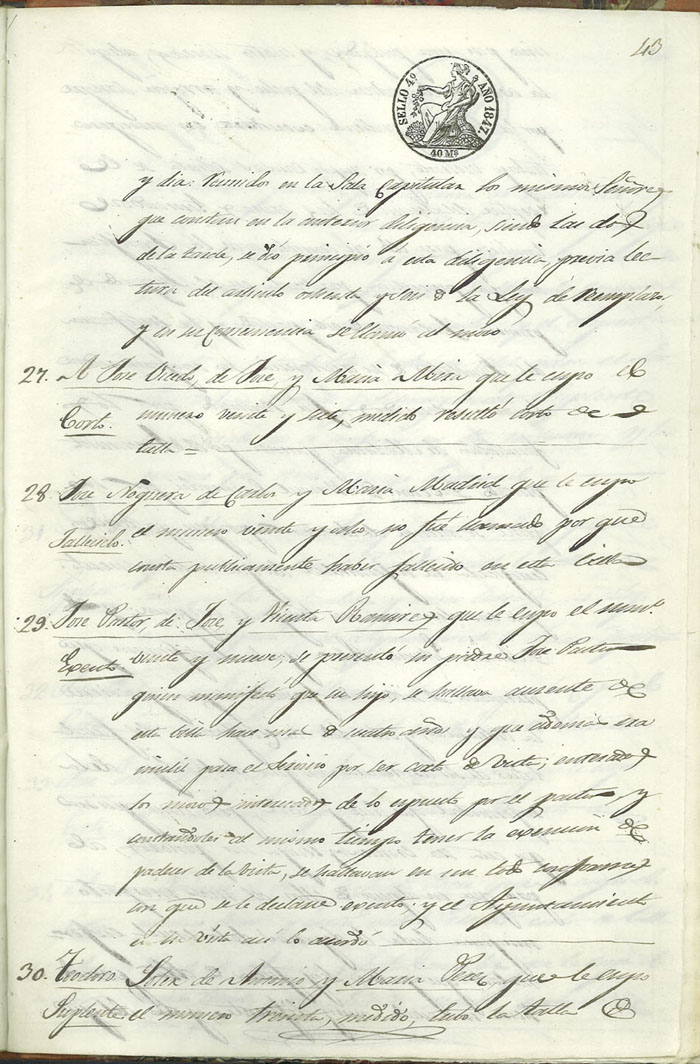 43
SELLO 4º AÑO 1847.
40 Ms
y dia: Reunidos en la Sala Capitular los mismos Señores
que constan en la anterior diligencia, siendo las dos
de la tarde, se dio principio á esta diligencia, previa lec-
tura del articulo ochenta y seis de la Ley de Reemplazos,
y en su consecuencia se llamó al mozo
27. A Jose de Jose, y Maria Mira que le cupo el
Corto. numero veinte y siete, medido resultó corto de
talla =
28 Jose Noguera de Carlos y Maria Madrid que le cupo
Fallecido. el numero veinte y ocho no fué llamado por que
consta publicamente haber fallecido en esta Villa
29. Jose Pastor, de Jose, y Vicenta Ramirez que le cupo el numº
Exento veinte y nueve, se presentó su padre Jose Pastor
quien manifestó que su hijo, se hallava ausente de
esta Villa hace mas de cuatro años y que ademas era
inutil para el Servicio por ser corto de vista; enterados
los mozos interesados de lo espuesto por el padre, y
constandoles al mismo tiempo tener la exencion de
padecer de la vista, se hallavan en un todo conformes
con que se le declare exento; y el Ayuntamiento
en su vista asi lo acordó
30. Teodoro Soler de Antonio y Maria Perez que le cupo
Suplente el numero treinta, medido, tubo la talla